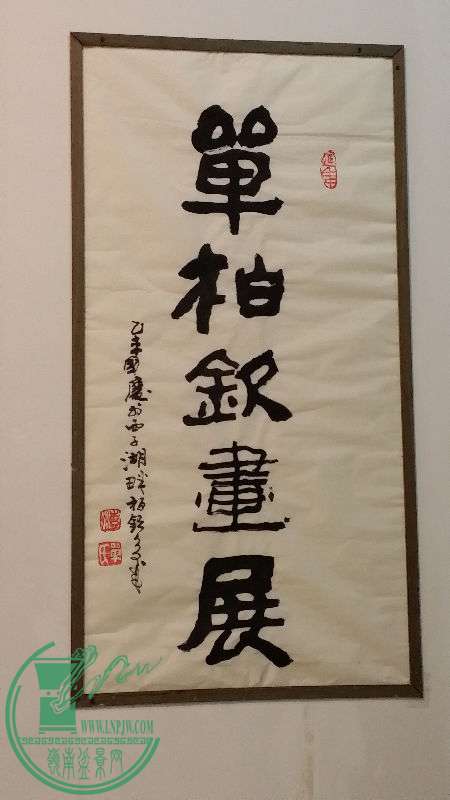 單柏欽畫展
乙未國慶於西子湖畔柏欽
WWW.LNPJW.COM
嶺南盆景网